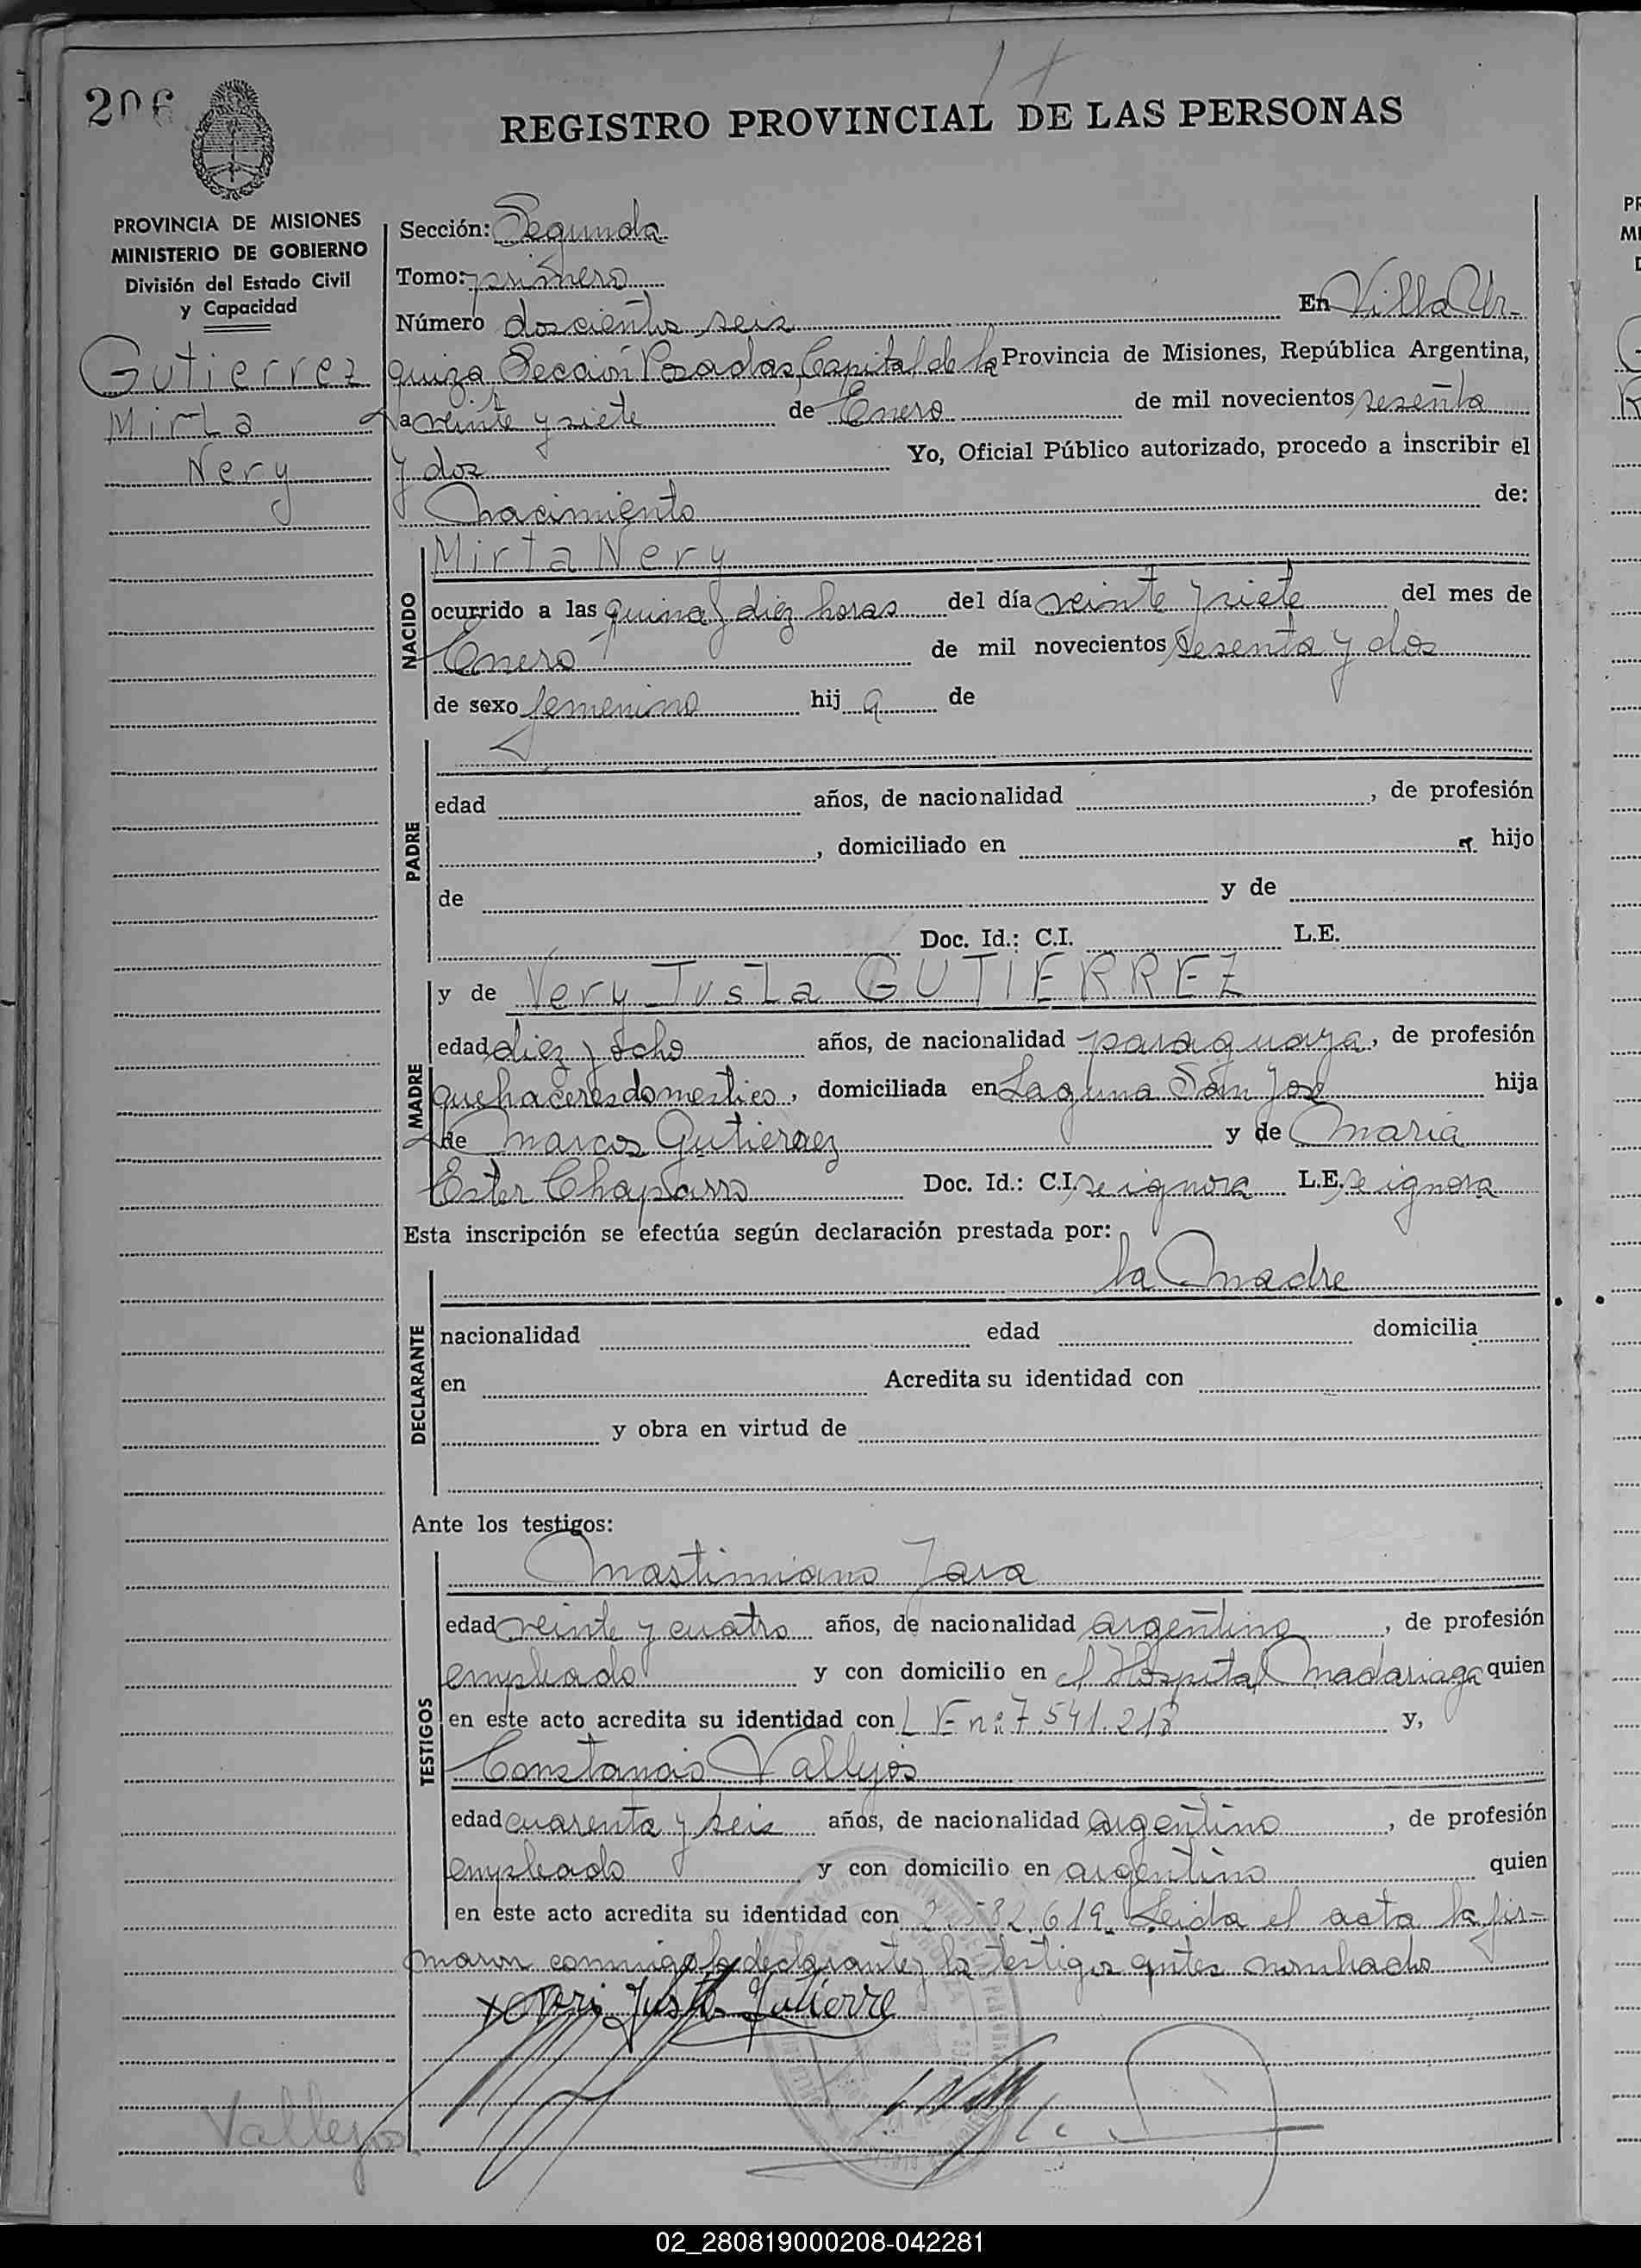 206
REGISTRO PROVINCIAL DE LAS PERSONAS
PROVINCIA DE MISIONES
MINISTERIO DE GOBIERNO
División del Estado Civil
y Capacidad
Gutierrez
Mirta
Nery
Sección: Segunda
Tomo: primero
Número doscientos seis En Villa Ur-
quiza Sección Posadas, Capital de la Provincia de Misiones, República Argentina,
a veinte y siete de Enero de mil novecientos sesenta
y dos Yo, Oficial Público autorizado, procedo a inscribir el
Nacimiento de:
NACIDO
Mirta Nery
ocurrido a las quince y diez horas del día veinte y siete del mes de
Enero de mil novecientos sesenta y dos
de sexo femenino hij a de
PADRE
edad años, de nacionalidad , de profesión
, domiciliado en hijo
de y de
Doc. Id.: C.I. L.E.
MADRE
y de Nery Justa GUTIERREZ
edad diez y ocho años, de nacionalidad paraguaya, de profesión
quehaceres domestico, domiciliada en Laguna San José hija
de Marcos Gutierrez y de Maria
Ester Chaparro Doc. Id.: C.I. se ignora L.E. se ignora
Esta inscripción se efectúa según declaración prestada por:
la Madre
DECLARANTE
nacionalidad edad domicilia
en Acredita su identidad con
y obra en virtud de
Ante los testigos:
TESTIGOS
Mastimiano Jara
edad veinte y cuatro años, de nacionalidad argentino, de profesión
empleado y con domicilio en el Hospital Madariaga quien
en este acto acredita su identidad con L E nº 7.541.218 y,
Constancio Vallejos
edad cuarenta y seis años, de nacionalidad argentino, de profesión
empleado y con domicilio en argentino quien
en este acto acredita su identidad con 2.582.619. Leida el acta la fir-
maron conmigo la declarante y los testigos antes nombrados
x Neri Justa Gutierre
Vallejos
02_280819000208-042281